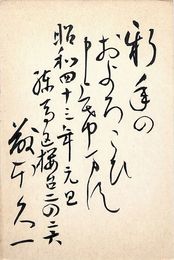 新年の
およろこび
申し上げます
昭和四十三年元旦
練馬区桜台二の二六
久一